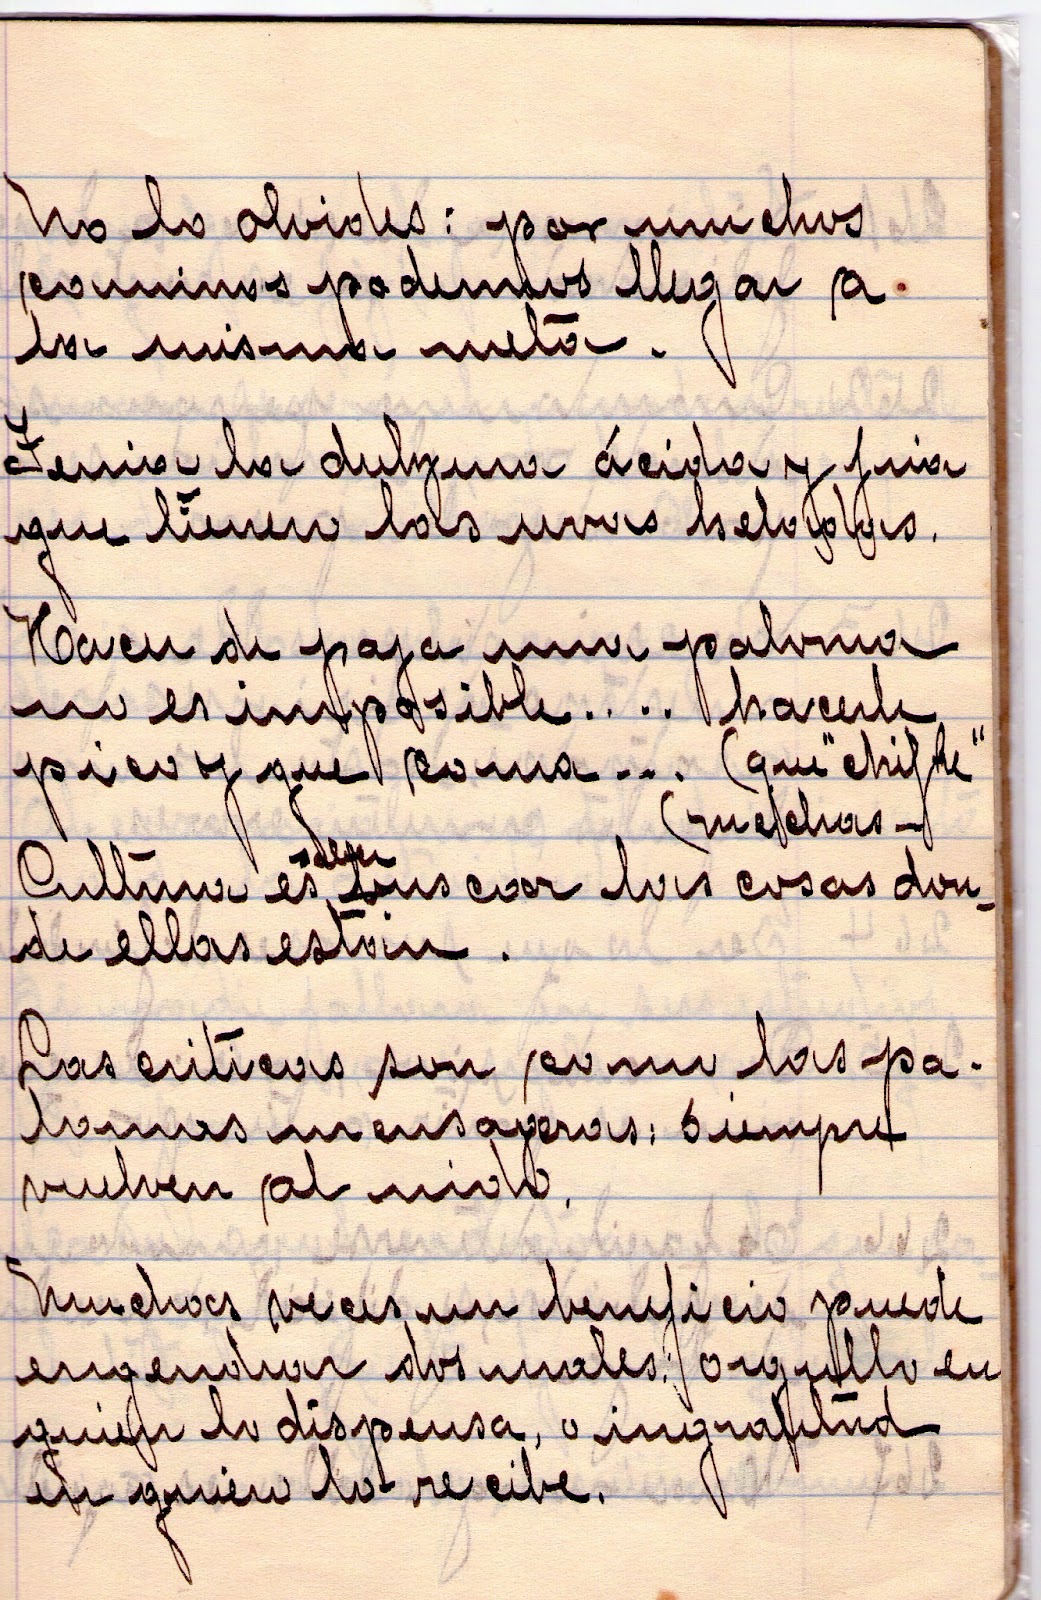 No lo olvides: por muchos
caminos podemos llegar a
la misma meta.
Tenia la dulzura ácida y fria
que tienen las uvas heladas.
Hacer de paja una paloma
no es imposible.... hacerle
pico y que coma... (que "chifle"
(mechas-
Cultura es saber buscar las cosas don-
de ellas están.
Las criticas son como las pa-
lomas mensajeras: siempre
vuelven al nido.
Muchas veces un beneficio puede
engendrar dos males: orgullo en
quien lo dispensa, o ingratitud
en quien lo recibe.